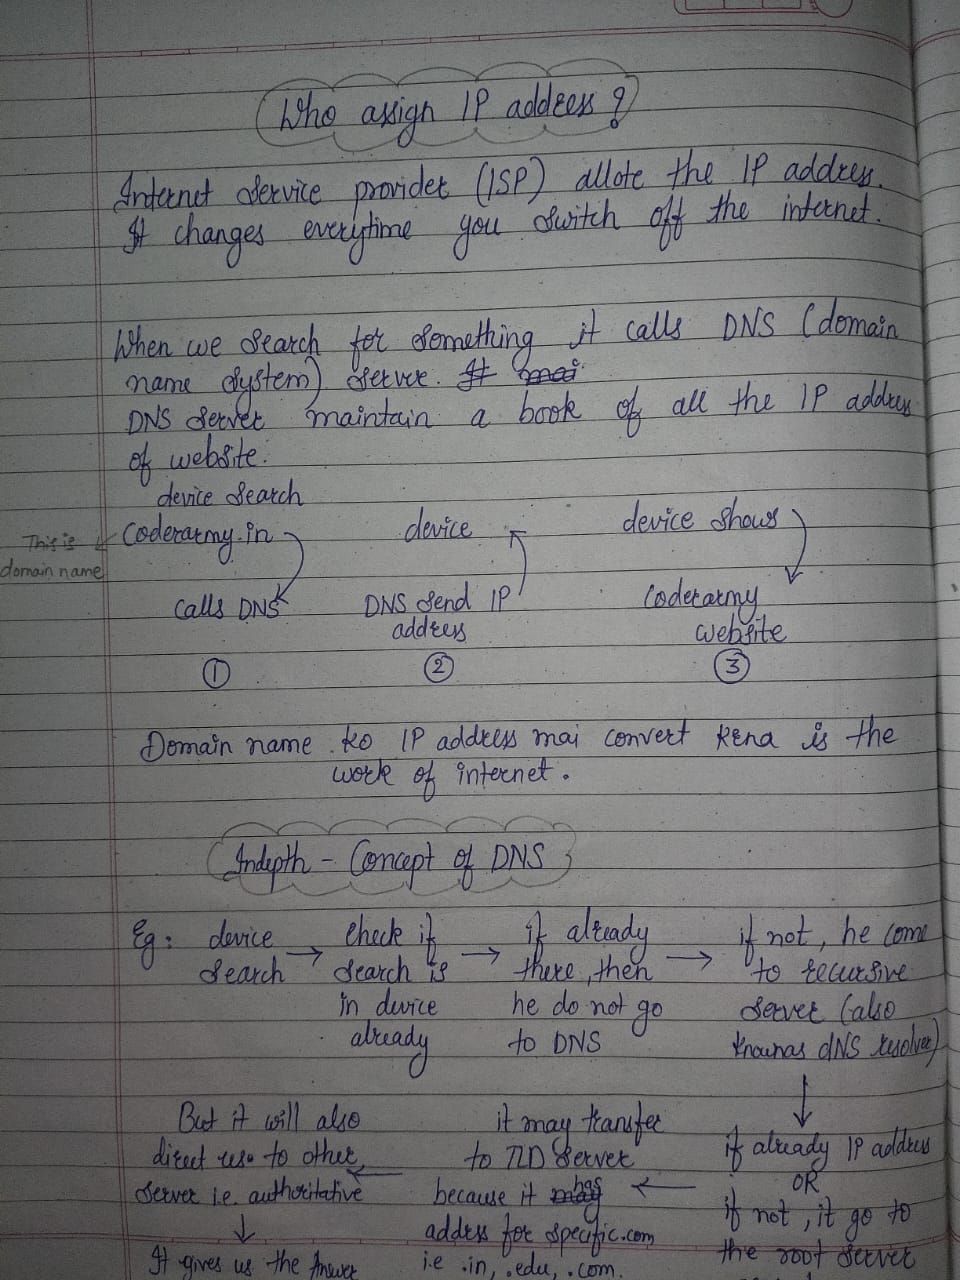 Who assign IP address ?
Internet service provider (ISP) allote the IP address.
It changes everytime you switch off the internet.
When we search for something it calls DNS (domain
name system) server. It mai
DNS server maintain a book of all the IP address
of website.
device search
coderarmy.in
This is
domain name
calls DNS
①
device
DNS send IP
address
②
device shows
coderarmy
website
③
Domain name ko IP address mai convert krna is the
work of internet.
Indepth - Concept of DNS
Eg: device
search →
check if
search is
in device
already →
if already
there, then
he do not go
to DNS →
if not, he come
to recursive
server (also
knownas dNS resolver)
↓
if already IP address
OR
if not, it go to
the root server
←
it may transfer
to TLD server
because it has
address for specific.com
i.e .in, .edu, .com.
←
But it will also
direct us to other
server i.e. authoritative
↓
It gives us the Answer